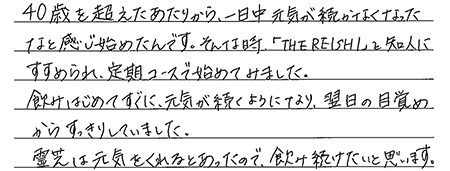 40歳を超えたあたりから、一日中元気が続かなくなった
なと感じ始めたんです。そんな時、「THE REISHI」と知人に
すすめられ、定期コースで始めてみました。
飲みはじめてすぐに、元気が続くようになり、翌日の目覚め
からすっきりしていました。
霊芝は元気をくれるとあったので、飲み続けたいと思います。